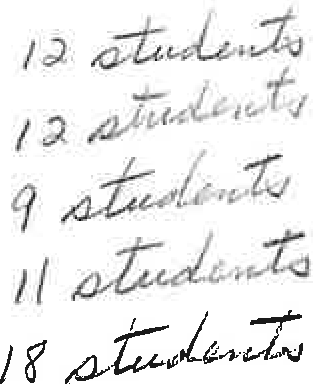 12 students
12 students
9 students
11 students
18 students